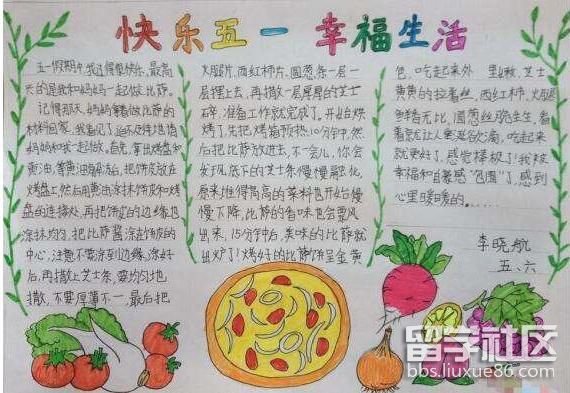 快乐五一 幸福生活
五一假期,我过得很快乐,最高
天的是我和妈妈一起做比萨。
记得那天,妈妈拿着做比萨的
材料回家,我看见了迫不及待地请
妈妈和我一起做。首先,拿出烤盘和
黄油,等黄油融冻后,把饼皮放在
烤盘上,然后用黄油涂抹饼皮和烤
盘的连接处,再把饼皮的边缘也
涂抹均匀,把比萨酱涂在饼皮的
中心,注意不要涂到边缘,涂好
后,再撒上芝士条,要均匀地
撒,不要厚薄不一,最后把
火腿片,西红柿片,圆葱条一层一
层摆上去,再撒一层厚厚的芝士
碎,准备工作就完成了。开始烘
烤了,先把烤箱预热10分钟,然
后把比萨放进去,不一会儿,你会
发现,底下的芝士条慢慢融化,
原来堆得高高的菜料也开始慢
慢下降,比萨的香味也会飘风
出来,15分钟后,美味的比萨就
出炉了!烤好的比萨饼呈金黄
色,吃起来外 里嫩,芝士
黄黄的拉着丝,西红柿,火腿
鲜精无比,圆葱丝脆生生,看
着就让人垂涎欲滴,吃起来
就更好了,感觉棒极了!我被
幸福和自豪感“包围”了,感到
心里暖暖的。
李晓航
五、六
留学社区
bbs.liuxue86.com